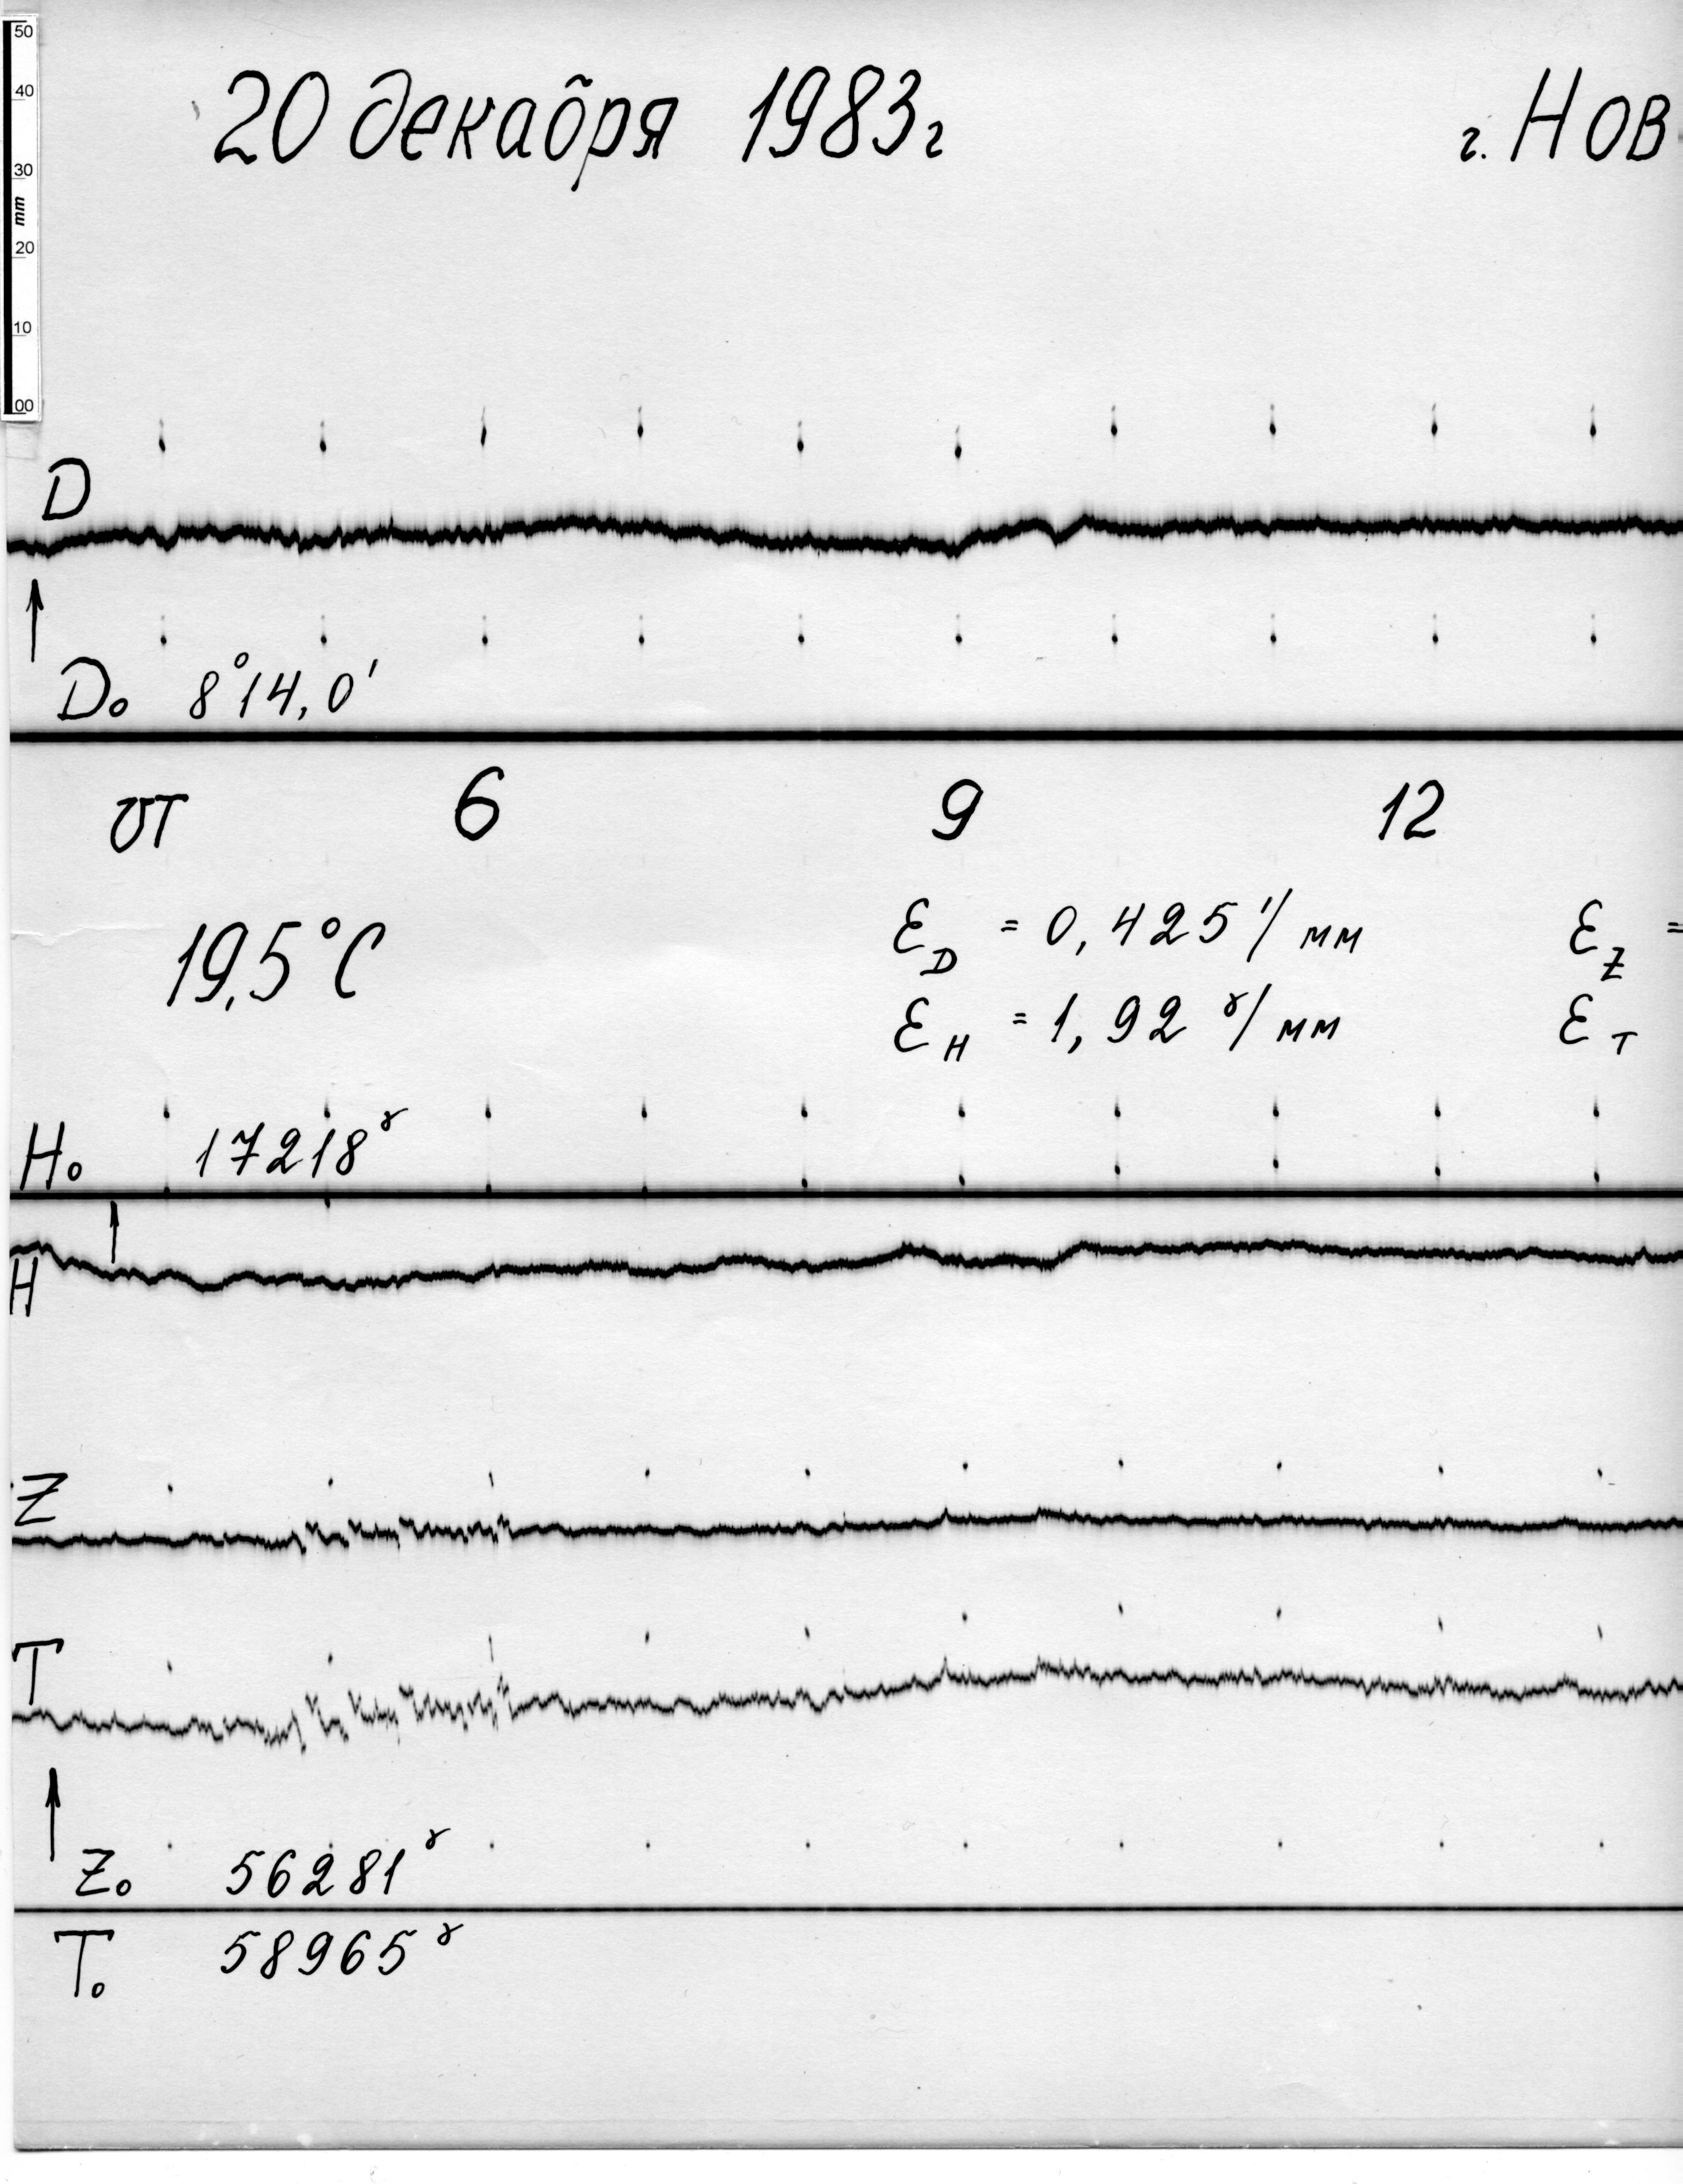 50
40
30
mm
20
10
00
20 декабря 1983г
г. Нов
D
D₀ 8°14,0'
UT 6 9 12
19,5°C
Ɛ_D = 0,425'/мм Ɛ_Z =
Ɛ_H = 1,92 ɣ/мм Ɛ_T
H₀ 17218ɣ
H
Z
T
Z₀ 56281ɣ
T₀ 58965ɣ